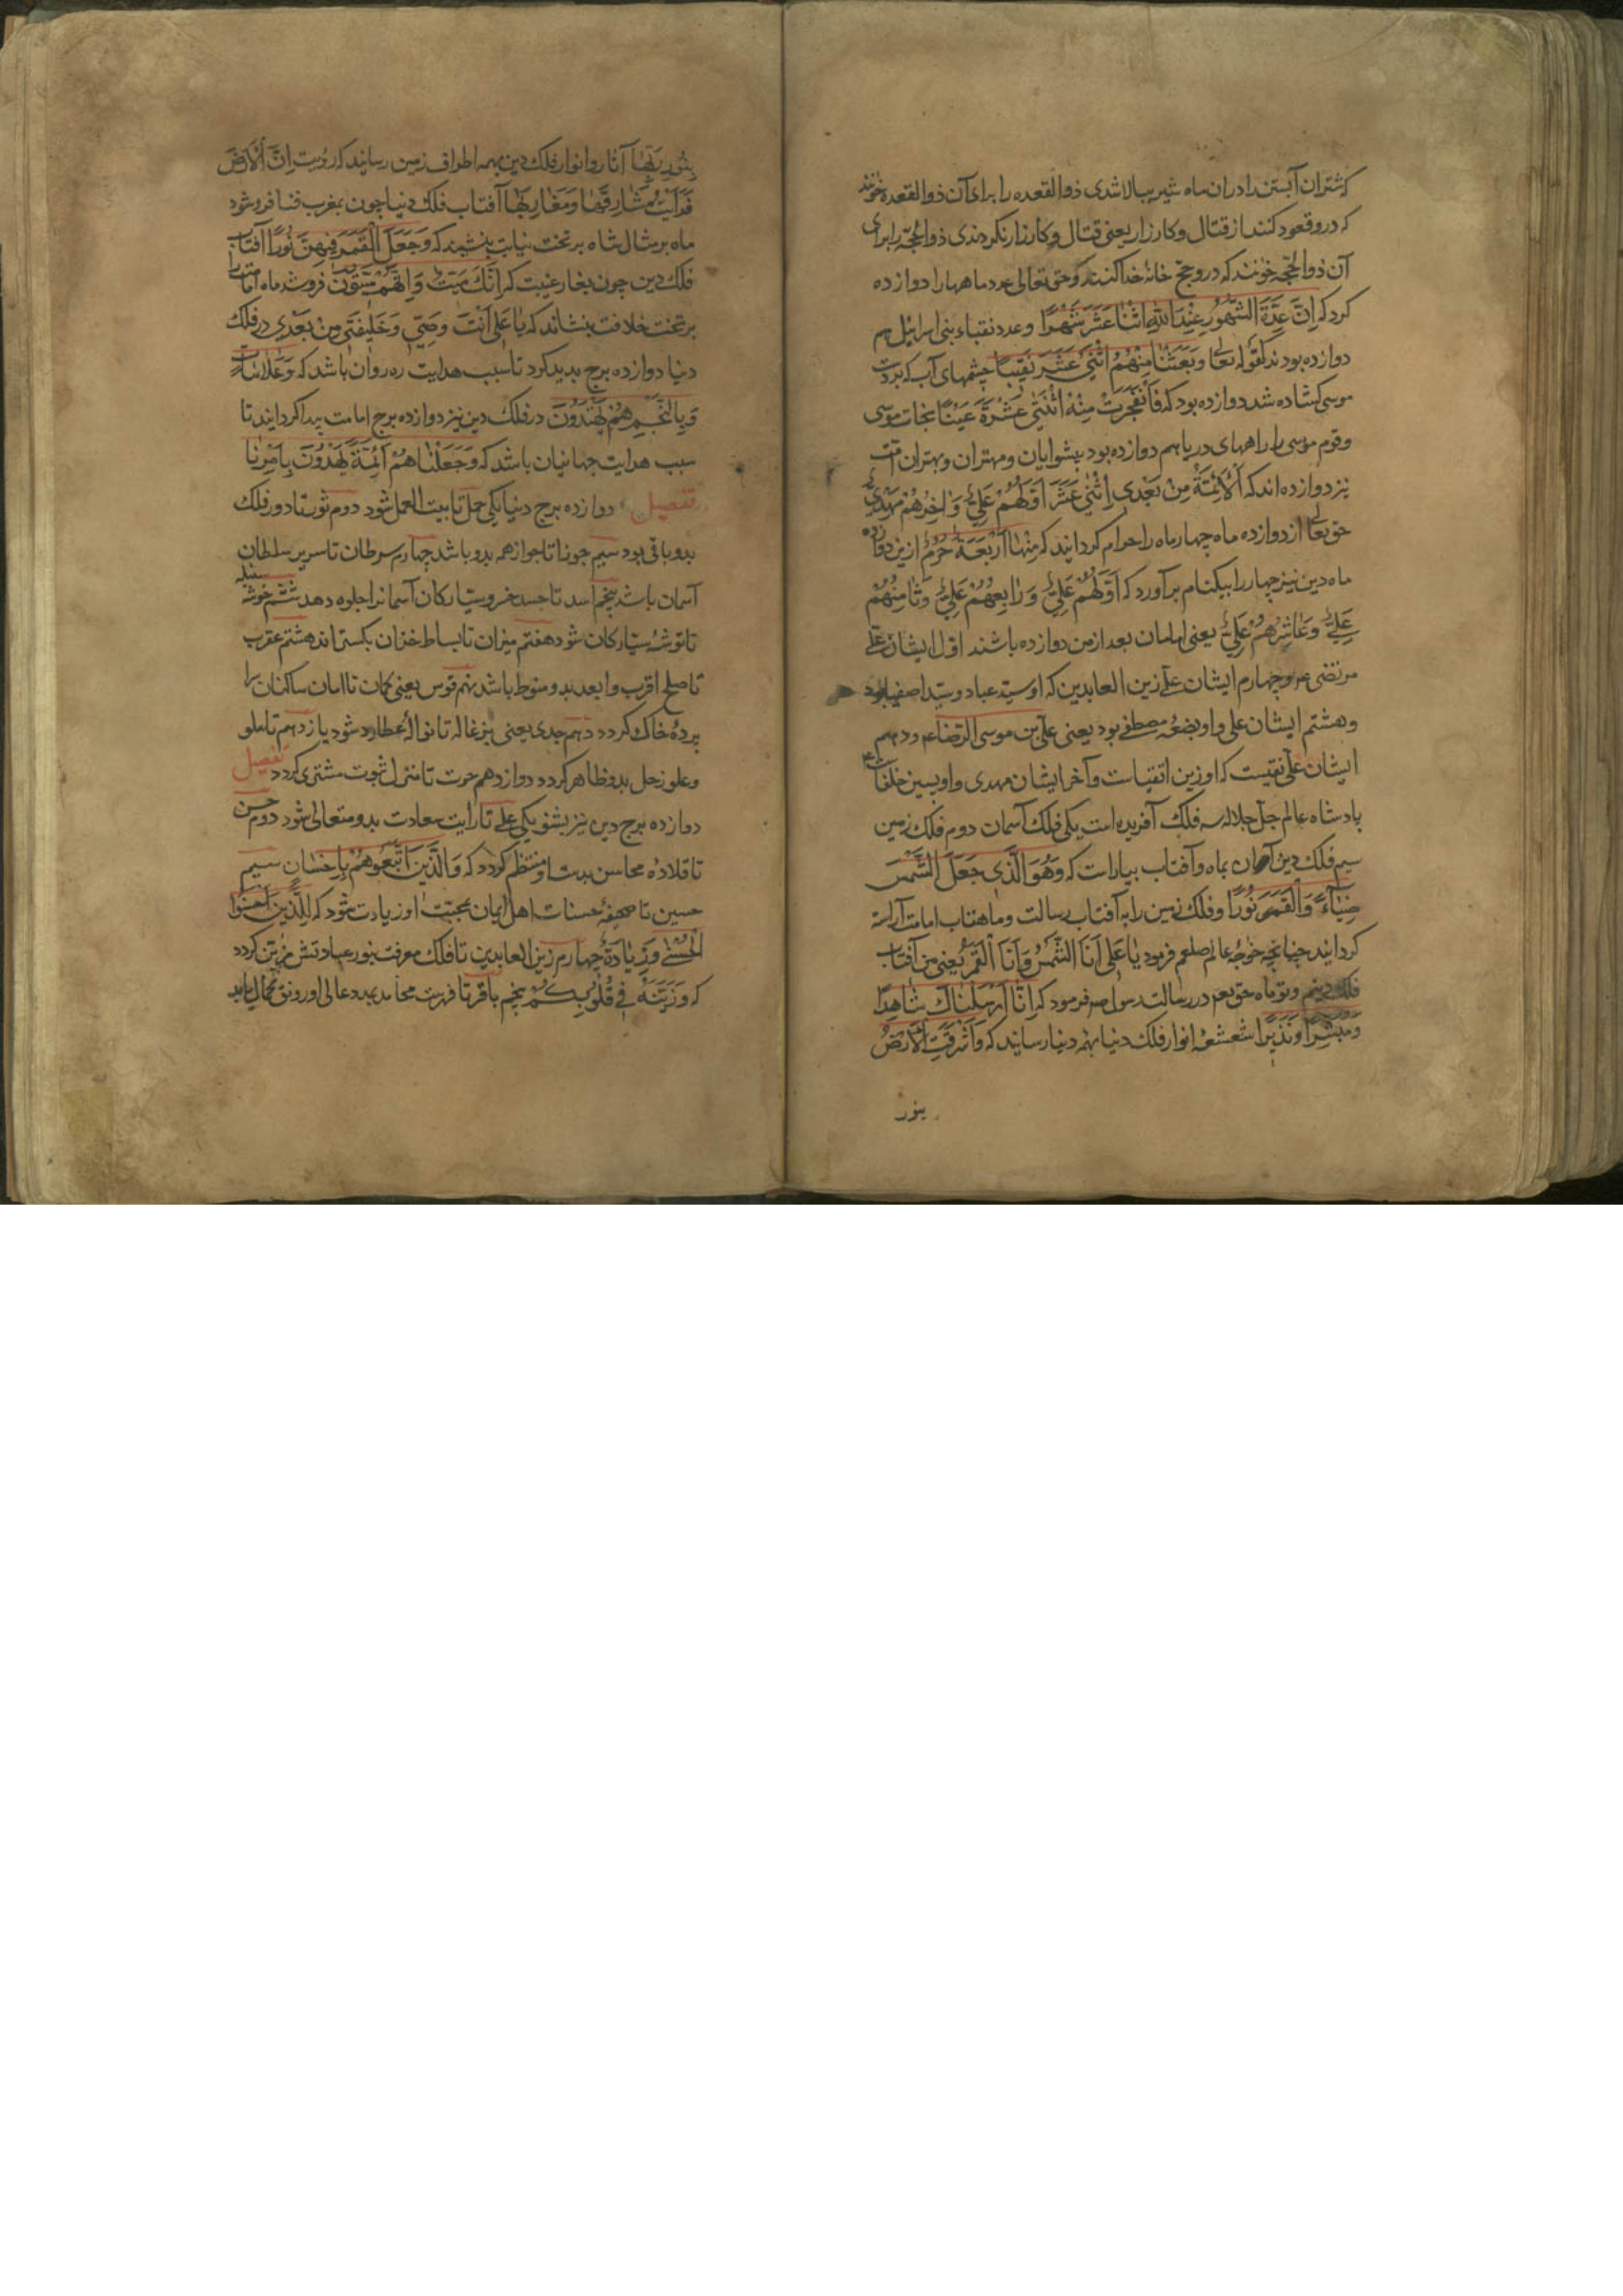 که شتران آبستن را دران ماه شیر ببالا شدی ذوالقعده را برای آن ذوالقعده خوانند
که درو قعود کنند از قتال و کارزار یعنی قتال و کارزار نکردندی ذوالحجه را برای
آن ذوالحجه خوانند که درو حج خانهٔ خدا کنند و حق تعالی عدد ماهها را دوازده
کرد که اِنَّ عِدَّةَ الشُّهُورِ عِنْدَ اللّٰهِ اثْنَا عَشَرَ شَهْرًا و عدد نقباء بنی اسرائیل هم
دوازده بودند لقوله تعا وَبَعَثْنَا مِنْهُمُ اثْنَیْ عَشَرَ نَقِیبًا چشمهای آب که بر دست
موسی کشاده شد دوازده بود که فَانْفَجَرَتْ مِنْهُ اثْنَتَیْ عَشْرَةَ عَیْنًا نجات موسی
و قوم موسی را راههای دریا هم دوازده بود پیشوایان و مهتران و بهتران امت
نیز دوازده اند که اَلْاَئِمَّةُ مِنْ بَعْدِی اِثْنَیْ عَشَرَ اَوَّلُهُمْ عَلِیٌّ وَاٰخِرُهُمْ مَهْدِیٌّ
حق تعا از دوازده ماه چهار ماه را حرام کردانید که مِنْهَا اَرْبَعَةٌ حُرُمٌ ازین دوازده
ماه دین نیز چهار را بیکنام برآورد که اَوَّلُهُمْ عَلِیٌّ وَرَابِعُهُمْ عَلِیٌّ وَثَامِنُهُمْ
عَلِیٌّ وَعَاشِرُهُمْ عَلِیٌّ یعنی امامان بعد از من دوازده باشند اول ایشان علی
مرتضی ع م و چهارم ایشان علی زین العابدین که او سید عباد و سید اصفیا بود
و هشتم ایشان علی و او بضعهٔ مصطفی بود یعنی علی بن موسی الرضا ع م و دهم
ایشان علی نقیست که او زین اتقیاست و آخر ایشان مهدی و او پسین خلفاست
پادشاه عالم جل جلاله سه فلک آفریده است یکی فلک آسمان دوم فلک زمین
سیم فلک دین آسمان بماه و آفتاب بیاراست که وَهُوَ الَّذِی جَعَلَ الشَّمْسَ
ضِیَاءً وَالْقَمَرَ نُورًا و فلک زمین را به آفتاب رسالت و ماهتاب امامت آراسته
کردانید چنانچه خواجهٔ عالم صلعم فرمود یَا عَلِی اَنَا الشَّمْسُ وَاَنْتَ الْقَمَرُ یعنی من آفتاب
فلک دینم و تو ماه حق تع م در رسالت رسول ص م فرمود که اِنَّا اَرْسَلْنَاكَ شَاهِدًا
وَمُبَشِّرًا وَنَذِیرًا شعشعهٔ انوار فلک دنیا بهمه دنیا رسانید که وَاَشْرَقَتِ الْاَرْضُ
بنور
بِنُورِ رَبِّهَا آثار و انوار فلک دین بهمه اطراف زمین رسانید که زویت اِنَّ الْاَرْضَ
فَرَاَیْتُ مَشَارِقَهَا وَمَغَارِبَهَا آفتاب فلک دنیا چون بمغرب فنا فرو شود
ماه بر مثال شاه بر تخت نیابت بنشیند که وَجَعَلَ الْقَمَرَ فِیهِنَّ نُورًا آفتاب
فلک دین چون بغار غیبت که اِنَّكَ مَیِّتٌ وَاِنَّهُمْ مَیِّتُونَ فرو شد ماه امامت را
بر تخت خلافت بنشاند که یَا عَلِی اَنْتَ وَصِیِّی وَخَلِیفَتِی مِنْ بَعْدِی در فلک
دنیا دوازده برج بدید کرد تا سبب هدایت ره روان باشد که وَعَلَامَاتٍ
وَبِالنَّجْمِ هُمْ یَهْتَدُونَ در فلک دین نیز دوازده برج امامت پیدا کردانید تا
سبب هدایت جهانیان باشد که وَجَعَلْنَاهُمْ اَئِمَّةً یَهْدُونَ بِاَمْرِنَا
تفصیل دوازده برج دنیا یکی حمل تا بیت العمل شود دوم ثور تا دور فلک
بدو باقی بود سیم جوزا تا جواز همه بدو باشد چهارم سرطان تا سریر سلطان
آسمان باشد پنجم اسد تا حسد خسرو سیارکان آسمانرا جلوه دهد ششم خوشه سنبله
تا توشهٔ سیارکان شود هفتم میزان تا بساط خزان بکستراند هشتم عقرب
تا صلح اقرب و ابعد بدو منوط باشد نهم قوس یعنی کمان تا امان ساکنان سرا
پردهٔ خاک کردد دهم جدی یعنی بزغاله تا نوالهٔ عطارد شود یازدهم تا علو
و علو زحل بدو ظاهر کردد دوازدهم حوت تا منزل ثبوت مشتری کردد تفصیل
دوازده برج دین نیز بشنو یکی علی تا رایت سعادت بدو متعالی شود دوم حسن
تا قلاده محاسن بدست او منتظم کردد که وَالَّذِینَ اتَّبَعُوهُمْ بِاِحْسَانٍ سیم
حسین تا صحیفهٔ حسنات اهل ایمان بمحبت او زیادت شود که لِلَّذِینَ اَحْسَنُوا
الْحُسْنٰی وَزِیَادَةٌ چهارم زین العابدین تا فلک معرفت بنور عبادتش مزین کردد
که وَزَیَّنَهُ فِی قُلُوبِكُمْ پنجم باقر تا فهرست محامد بدد عالی او رونق کمال یابد